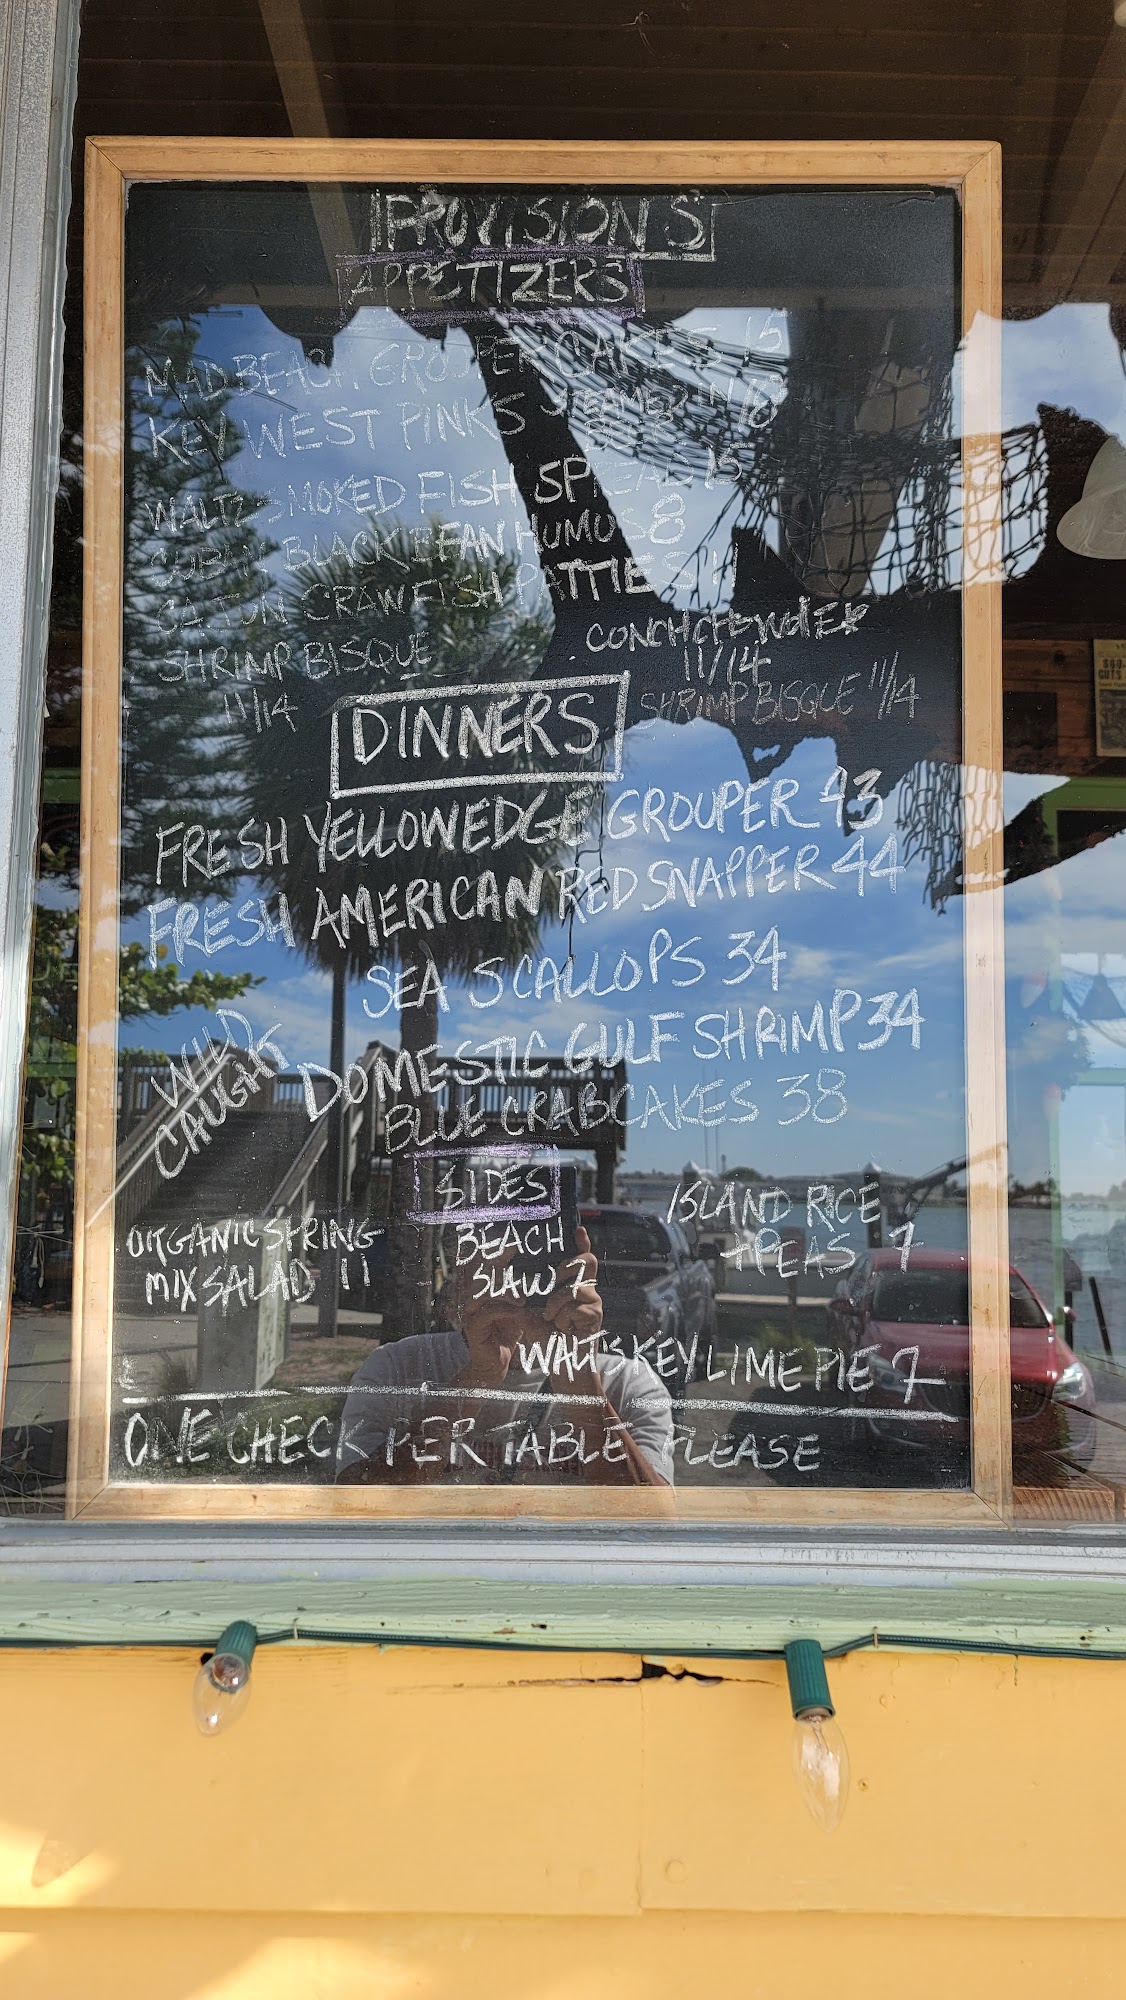 PROVISIONS
APPETIZERS
MADBEACH GROUPER CAKES 15
KEY WEST PINKS STEAMED IN BEER 18
WALTZ SMOKED FISH SPREAD 15
CUBAN BLACK BEAN HUMUS 8
CAJUN CRAWFISH PATTIES 11
SHRIMP BISQUE
11/14
CONCH CHOWDER
11/14
SHRIMP BISQUE 11/14
DINNERS
FRESH YELLOWEDGE GROUPER 43
FRESH AMERICAN RED SNAPPER 44
SEA SCALLOPS 34
WILD
CAUGHT
DOMESTIC GULF SHRIMP 34
BLUE CRABCAKES 38
SIDES
ORGANIC SPRING
MIX SALAD 11
BEACH
SLAW 7
ISLAND RICE
+PEAS 7
WALT'S KEY LIME PIE 7
ONE CHECK PER TABLE PLEASE